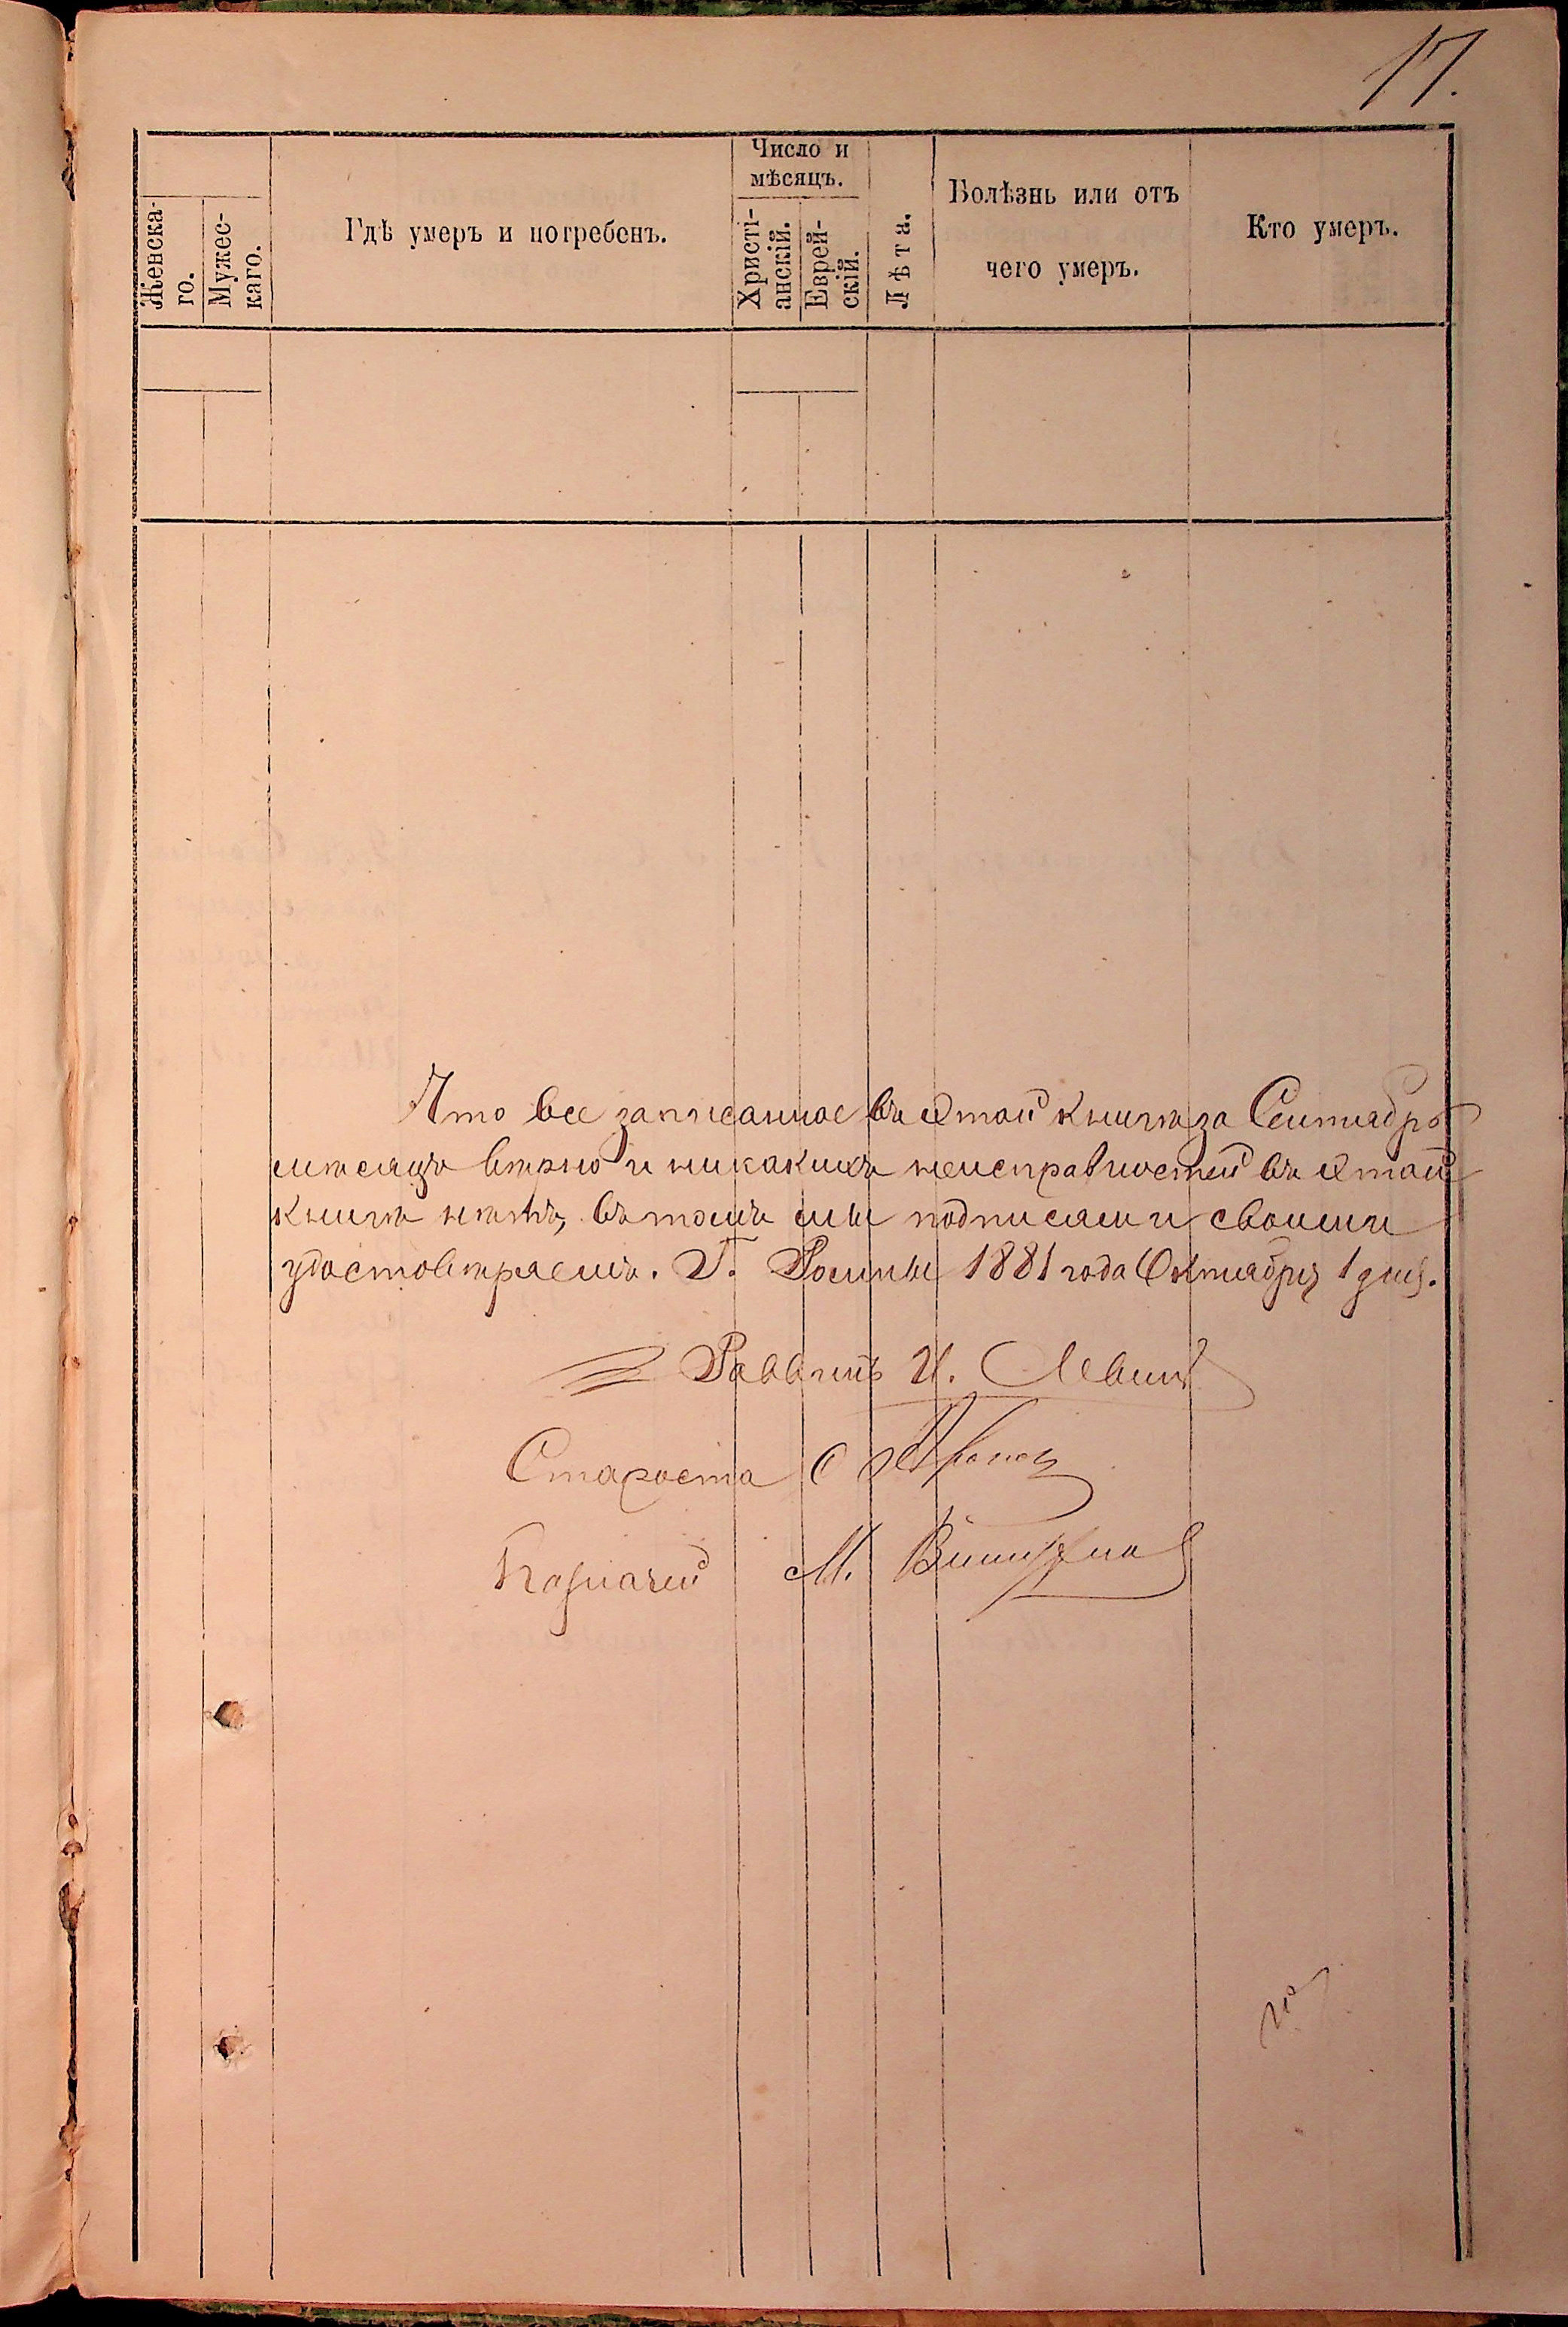 17.
Женска-
го.
Мужес-
каго.
Гдѣ умеръ и погребенъ.
Число и
мѣсяцъ.
Христі-
анскій.
Еврей-
скій.
Лѣта.
Болѣзнь или отъ
чего умеръ.
Кто умеръ.
Что все записанное въ этой книгѣ за Сентябрь
мѣсяцъ вѣрно и никакихъ неисправностей въ этой
книгѣ нѣтъ, въ томъ мы подписями своими
удостовѣряемъ. Г. Ромны 1881 года Октября 1 дня.
Раввинъ И. Левинъ
Староста
Казначей М.